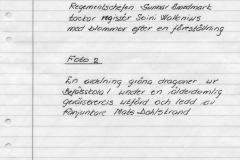 Regementschefen Gunnar Bondmark
tackar regissör Soini Wallenius
med blommor efter en föreställning
Foto 2
En avdelning gröna dragoner ur
under en ålderdomlig
gevärsexercis utförd och ledd av
fanjunkare Mats Dahlstrand